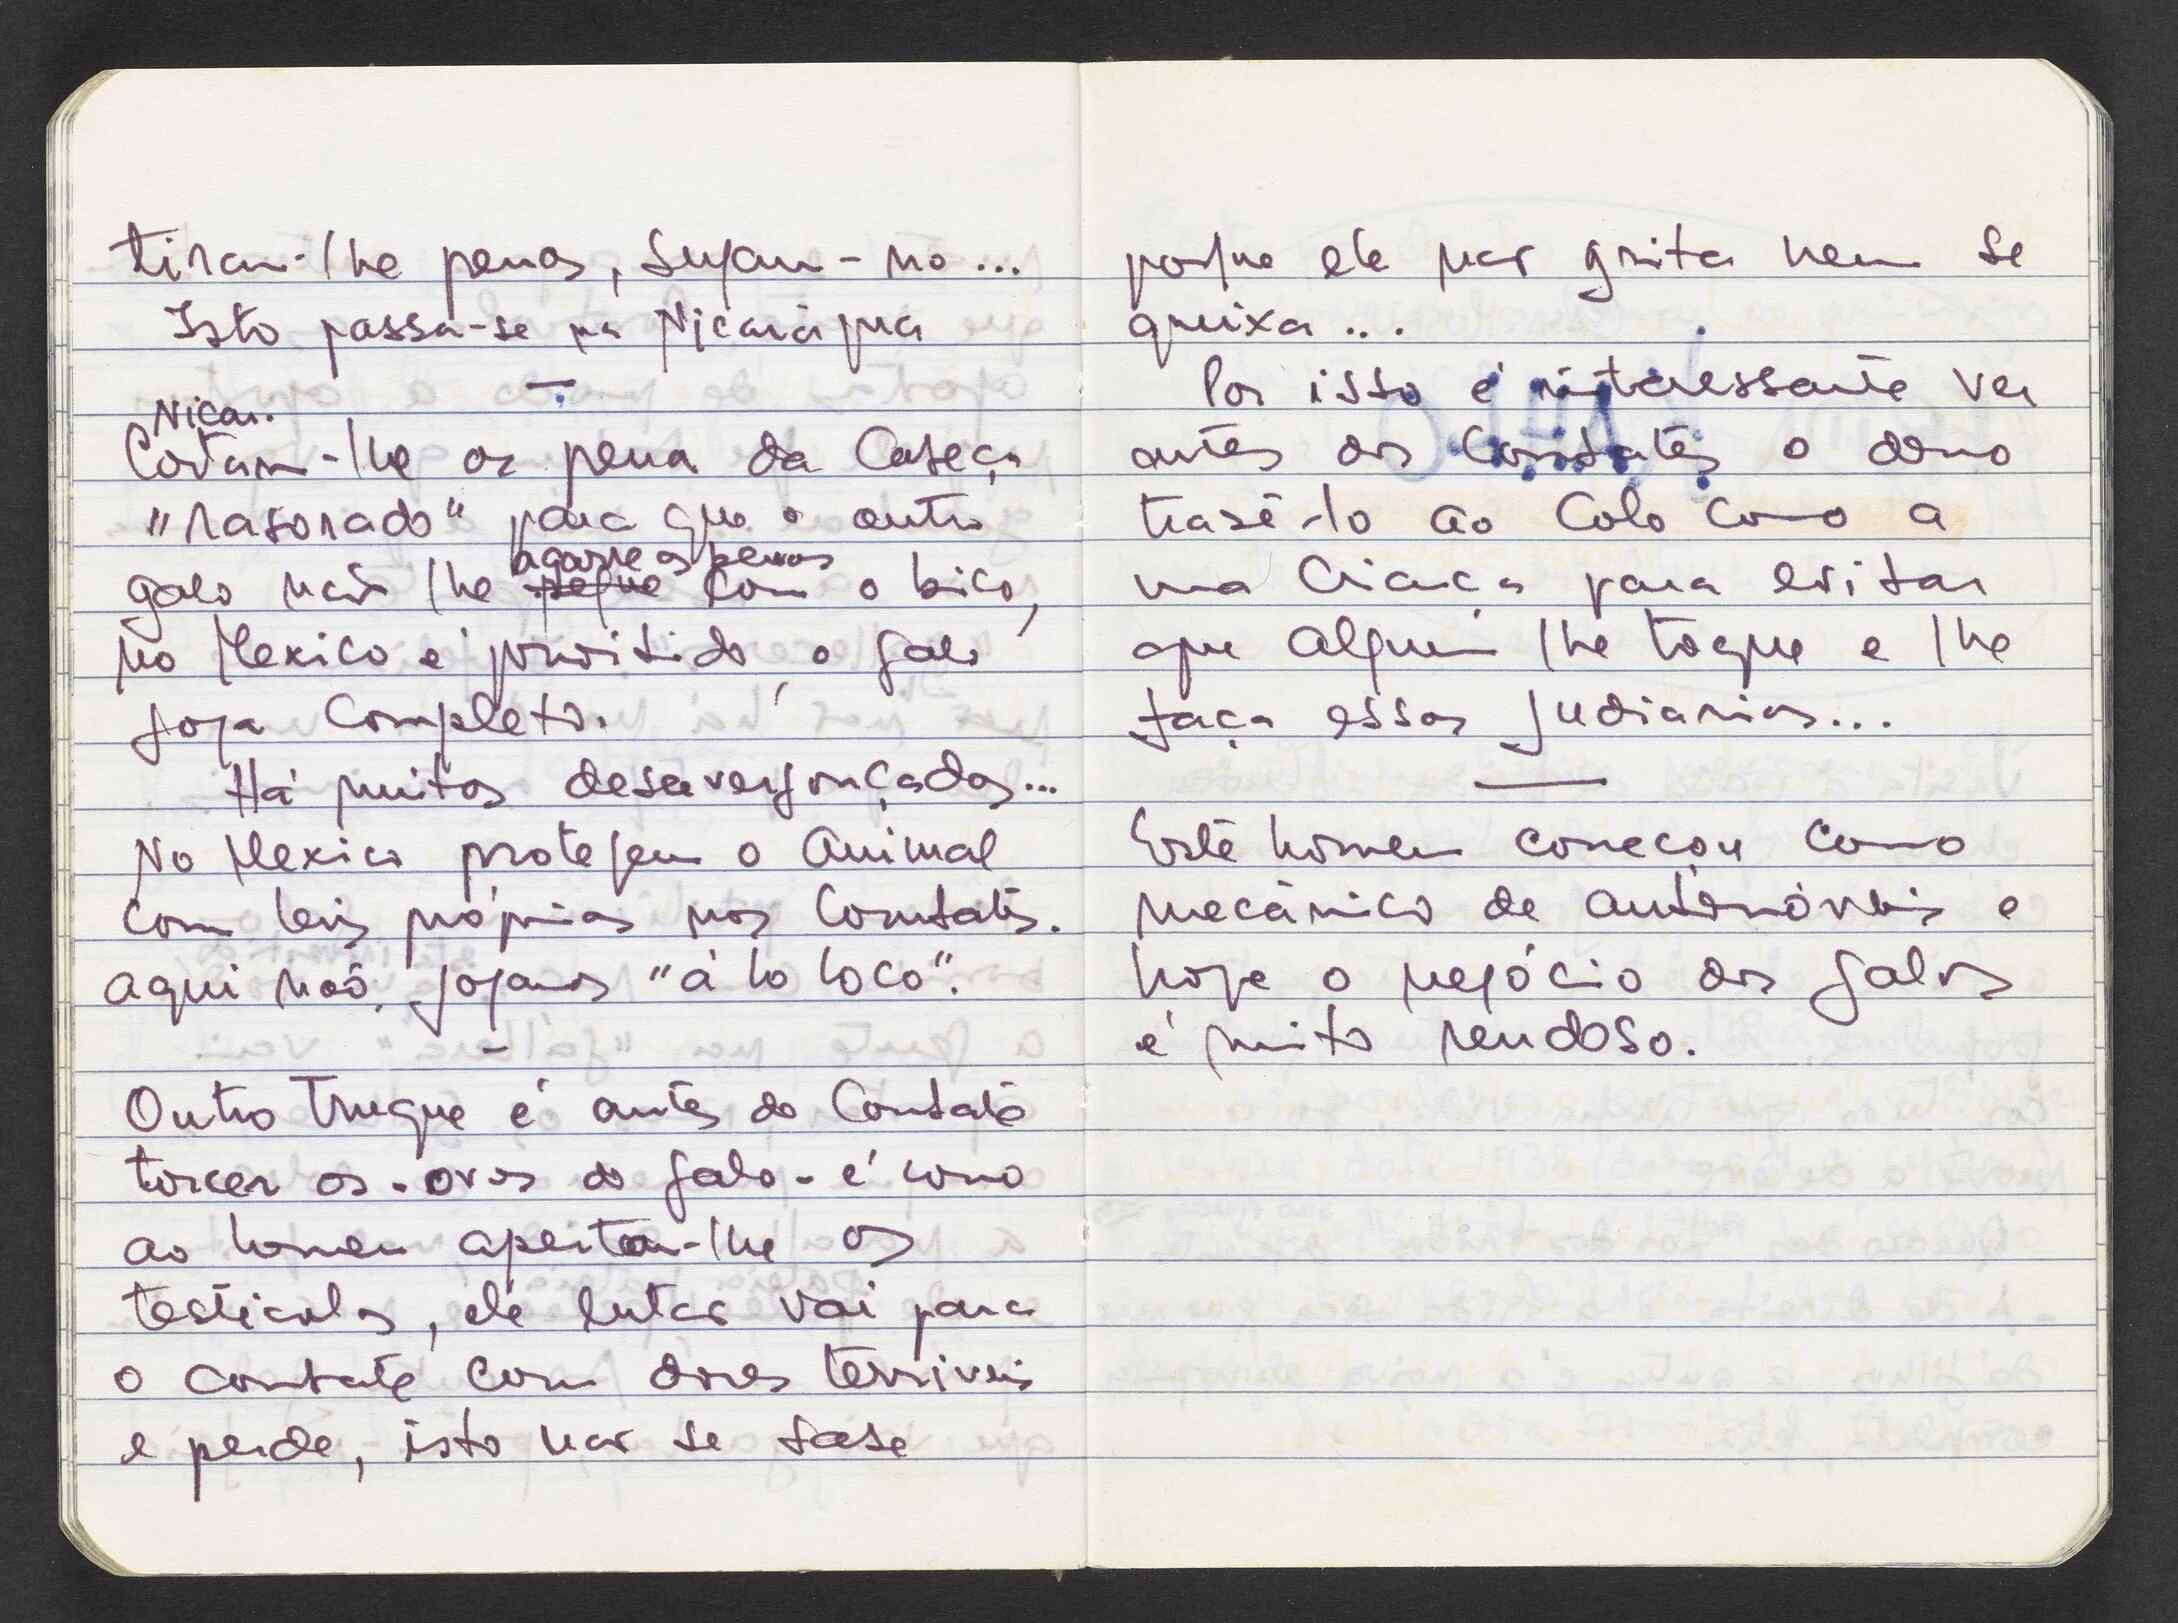 tiram-lhe penas, sujam-no...
Isto passa-se na Nicarágua
Nicar.
Cortam-lhe as pena da Cabeça
"rasorado" para que o outro
agarre as penas
galo não lhe pegue com o bico,
no Mexico é proibido, o galo
joga completo.
Há muitos desavergonçados...
No Mexico protegem o animal
com leis próprias nos combates.
aqui não, jogamos "á lo loco".
Outro Truque é antes do Combate
torcer os - ovos do galo - é como
ao homem apertar-lhe os
testiculos, ele lutar vai para
o combate com dores terriveis
e perde, isto não se sabe
porque ele não grita nem se
queixa...
Por isso é interessante ver
antes dos combates o dono
trasê-lo ao colo como a
uma criança para evitar
que alguém lhe toque e lhe
faça essas judiarias...
Este homem começou como
mecânico de automóveis e
hoje o negócio dos galos
é muito rendoso.